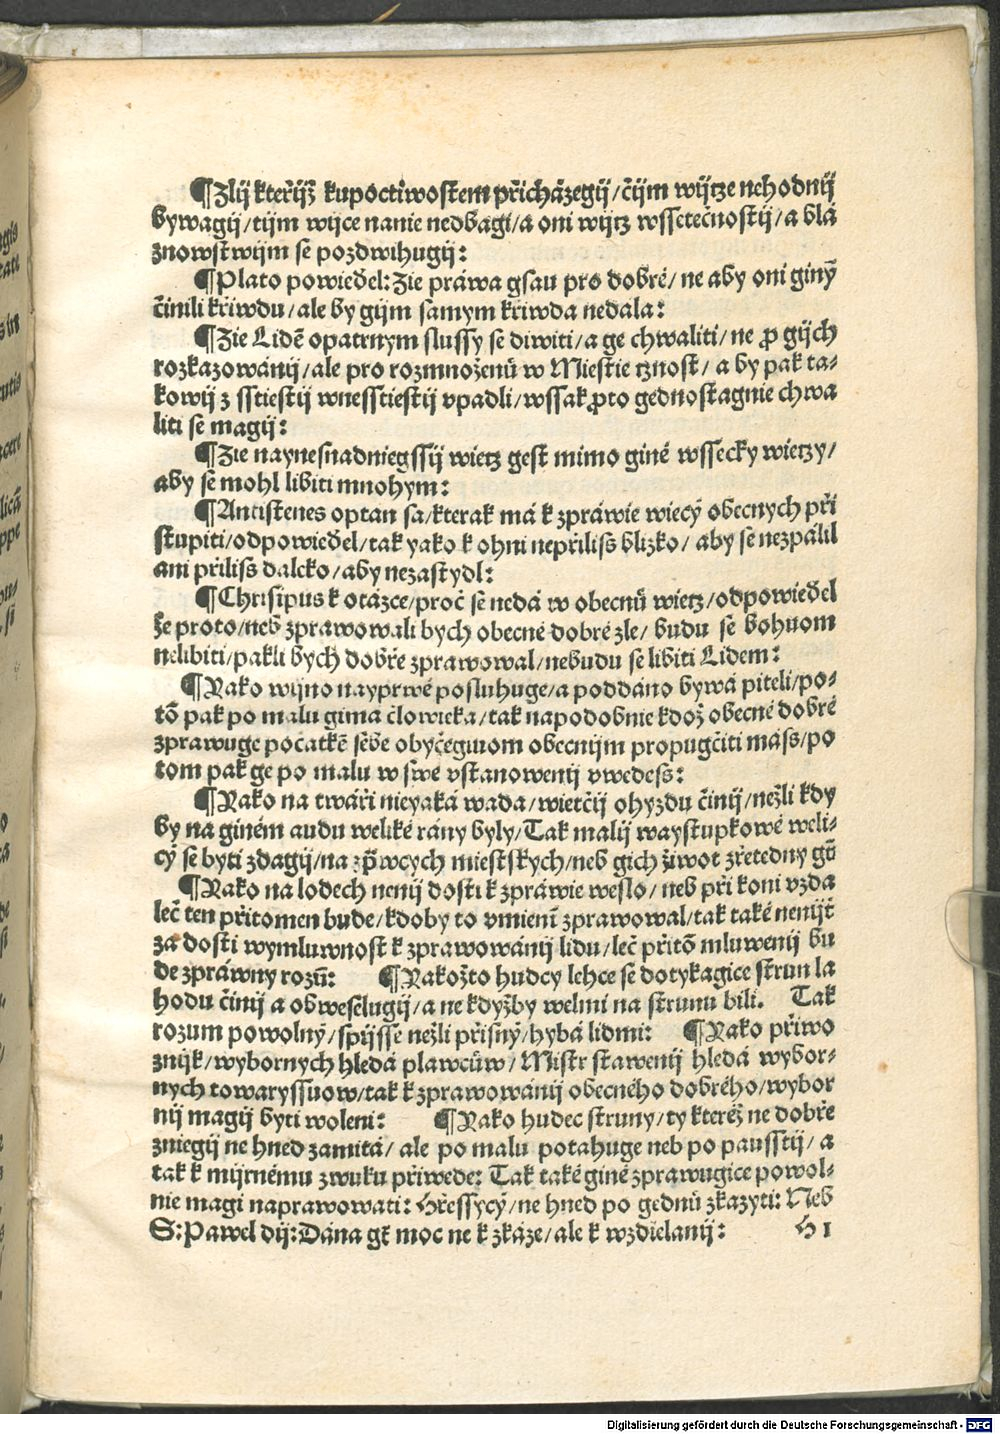 ¶Zlij kteřijž kupoctiwostem přicházegij/čijm wijtze nehodnij
bywagij/tijm wijce nanie nedbagi/a oni wijtz wssetečnostij/a blá
znowstwijm se pozdwihugij:
¶Plato powieděl: Zie práwa gsau pro dobré/ ne aby oni giný
činili křiwdu/ale by gijm samym křiwda nedala:
¶Zie Lidē opatrnym slussy se diwiti/a ge chwaliti/ ne ꝓ gijch
rozkazowánij/ale pro rozmnoženů w Miestie tznost/ a by pak ta-
kowij z sstiestij wnesstiestij vpadli/wssak ꝓto gednostagnie chwa
liti se magij:
¶Zie naynesnadniegssij wietz gest mimo giné wssecky wietzy/
aby se mohl libiti mnohym:
¶Antistenes optan sa/kterak má k zpráwie wiecý obecnych při
stupiti/odpowieděl/tak yako k ohni nepřiliss blizko/ aby se nezpálil
ani přiliss daleko/aby nezastydl:
¶Chrisipus k otázce/proč se nedá w obecnů wietz/odpowieděl
že proto/neb zprawowali bych obecné dobré zle/ budu se bohuom
nelibiti/pakli bych dobře zprawowal/nebudu se libiti Lidem:
¶Yako wijno nayprwé posluhuge/a poddáno bywá piteli/po-
tō pak po malu gima človieka/tak napodobnie kdož obecné dobré
zprawuge počatkē sebe obyčeguom obecnijm propugčiti máss/po
tom pak ge po malu w swé vstanowenij vwedess:
¶Yako na twáři nieyaká wada/wietčij ohyzdu činij/nežli kdy
by na giném audu weliké rány byly/Tak malij waystupkowé weli-
cý se byti zdagij/na zp̄wcych miestskych/neb gich žiwot zřetedlny gt̄
¶Yako na lodech nenij dosti k zpráwie weslo/ neb při koni vzda
leč ten přitomen bude/kdoby to vmienī zprawowal/tak také nenijť
za dosti wymluwnost k zprawowánij lidu/leč přitō mluwenij bu
de zpráwny rozū: ¶Yakožto hudcy lehce se dotykagice strun la
hodu činij a obweselugij/a ne kdyžby welmi na strunu bili. Tak
rozum powolný/spijsse nežli přisný/hybá lidmi: ¶Yako přiwo
znijk/wybornych hledá plawcůw/Mistr stawenij hledá wybor-
nych towaryssuow/tak k zprawowánij obecného dobrého/wybor
nij magij byti woleni: ¶Yako hudec struny/ty kteréž ne dobře
zniegij ne hned zamitá/ ale po malu potahuge neb po pausstij/ a
tak k mijrnému zwuku přiwede: Tak také giné zprawugice powol-
nie magi naprawowati: Hřessycý/ne hned po gednů zkazyti: Neb
S: Pawel dij: Dána gt̄ moc ne k zkáze/ale k wzdielanij: H 1
Digitalisierung gefördert durch die Deutsche Forschungsgemeinschaft - DFG